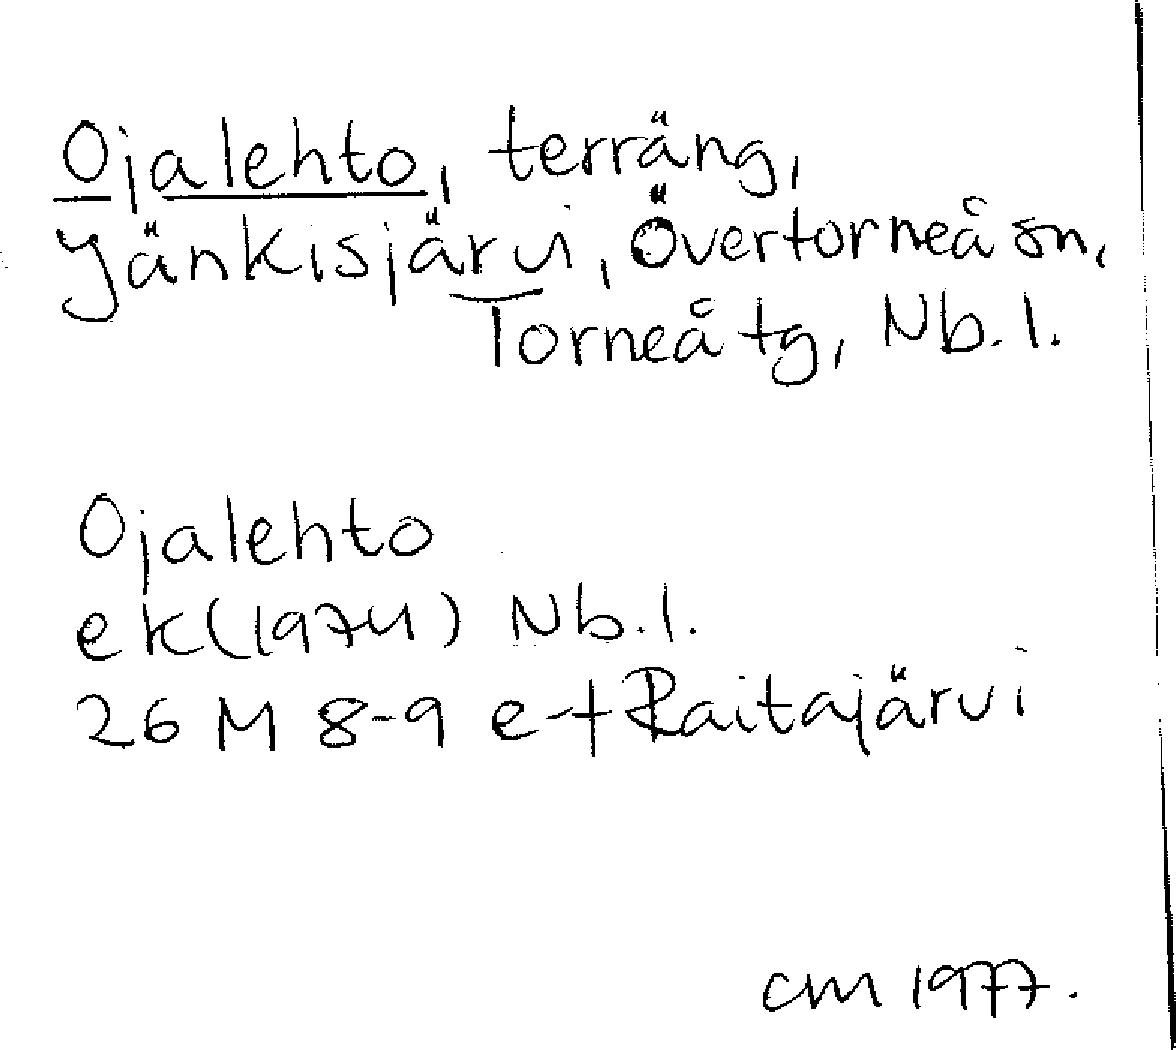 Ojalehto, terräng,
Jänkisjärvi, Övertorneå sn,
Torneå tg, Nb. l.
Ojalehto
ek (1974) Nb. l.
26 M 8-9 e-f Raitajärvi
CM 1977.